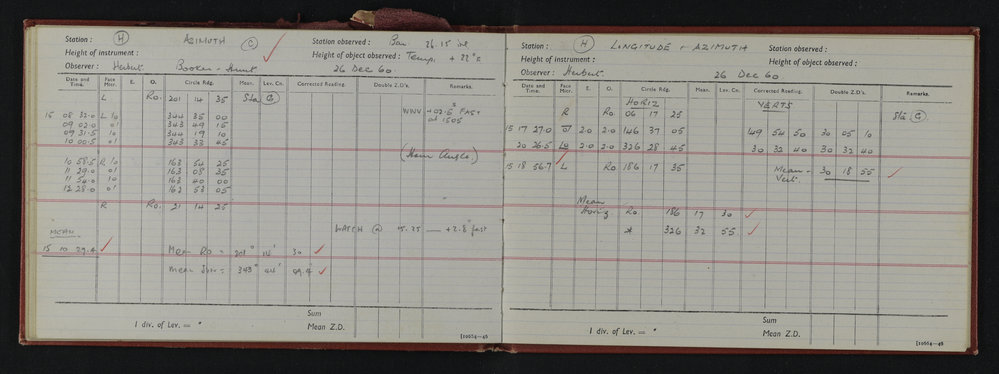 Station : H AZIMUTH C Station observed :
Height of instrument : Height of object observed : Temp. + 22°
Observer : Herbert. 26 Dec 60.
Date and Time. Face Micr. E. O. Circle Rdg. Mean. Lev. Co. Corrected Reading. Double Z.D's. Remarks.
L Ro. 201 14 35 Sta C
15 08 32.0 L 10 344 35 00 WWV +02.5 s FAST
09 02.0 01 343 49 15 at 1505
09 31.5 10 344 19 10
10 00.5 01 343 33 45
10 58.5 R 10 163 54 25
11 29.0 01 163 08 35
11 54.0 10 163 40 00
12 28.0 01 162 53 05
R Ro. 21 14 25
MEAN WATCH @ 15.25 — +2.8 s fast
15 10 29.4 Mean Ro = 201° 14' 30
Mean = 343° 44' 09.4"
Sum
1 div. of Lev. = " Mean Z.D.
[10664—46
Station : H LONGITUDE + AZIMUTH Station observed :
Height of instrument : Height of object observed :
Observer : Herbert. 26 Dec 60
Date and Time. Face Micr. E. O. Circle Rdg. Mean. Lev. Co. Corrected Reading. Double Z.D's. Remarks.
HORIZ VERTS
R Ro 06 17 25 Sta C
15 17 27.0 01 2.0 2.0 146 37 05 149 54 50 30 05 10
20 26.5 L0 2.0 2.0 326 28 45 30 32 40 30 32 40
15 18 56.7 L Ro 186 17 35 Mean Vert. 30 18 55
Mean Horiz Ro 186 17 30
* 326 32 55
Sum
1 div. of Lev. = " Mean Z.D.
[10664—46